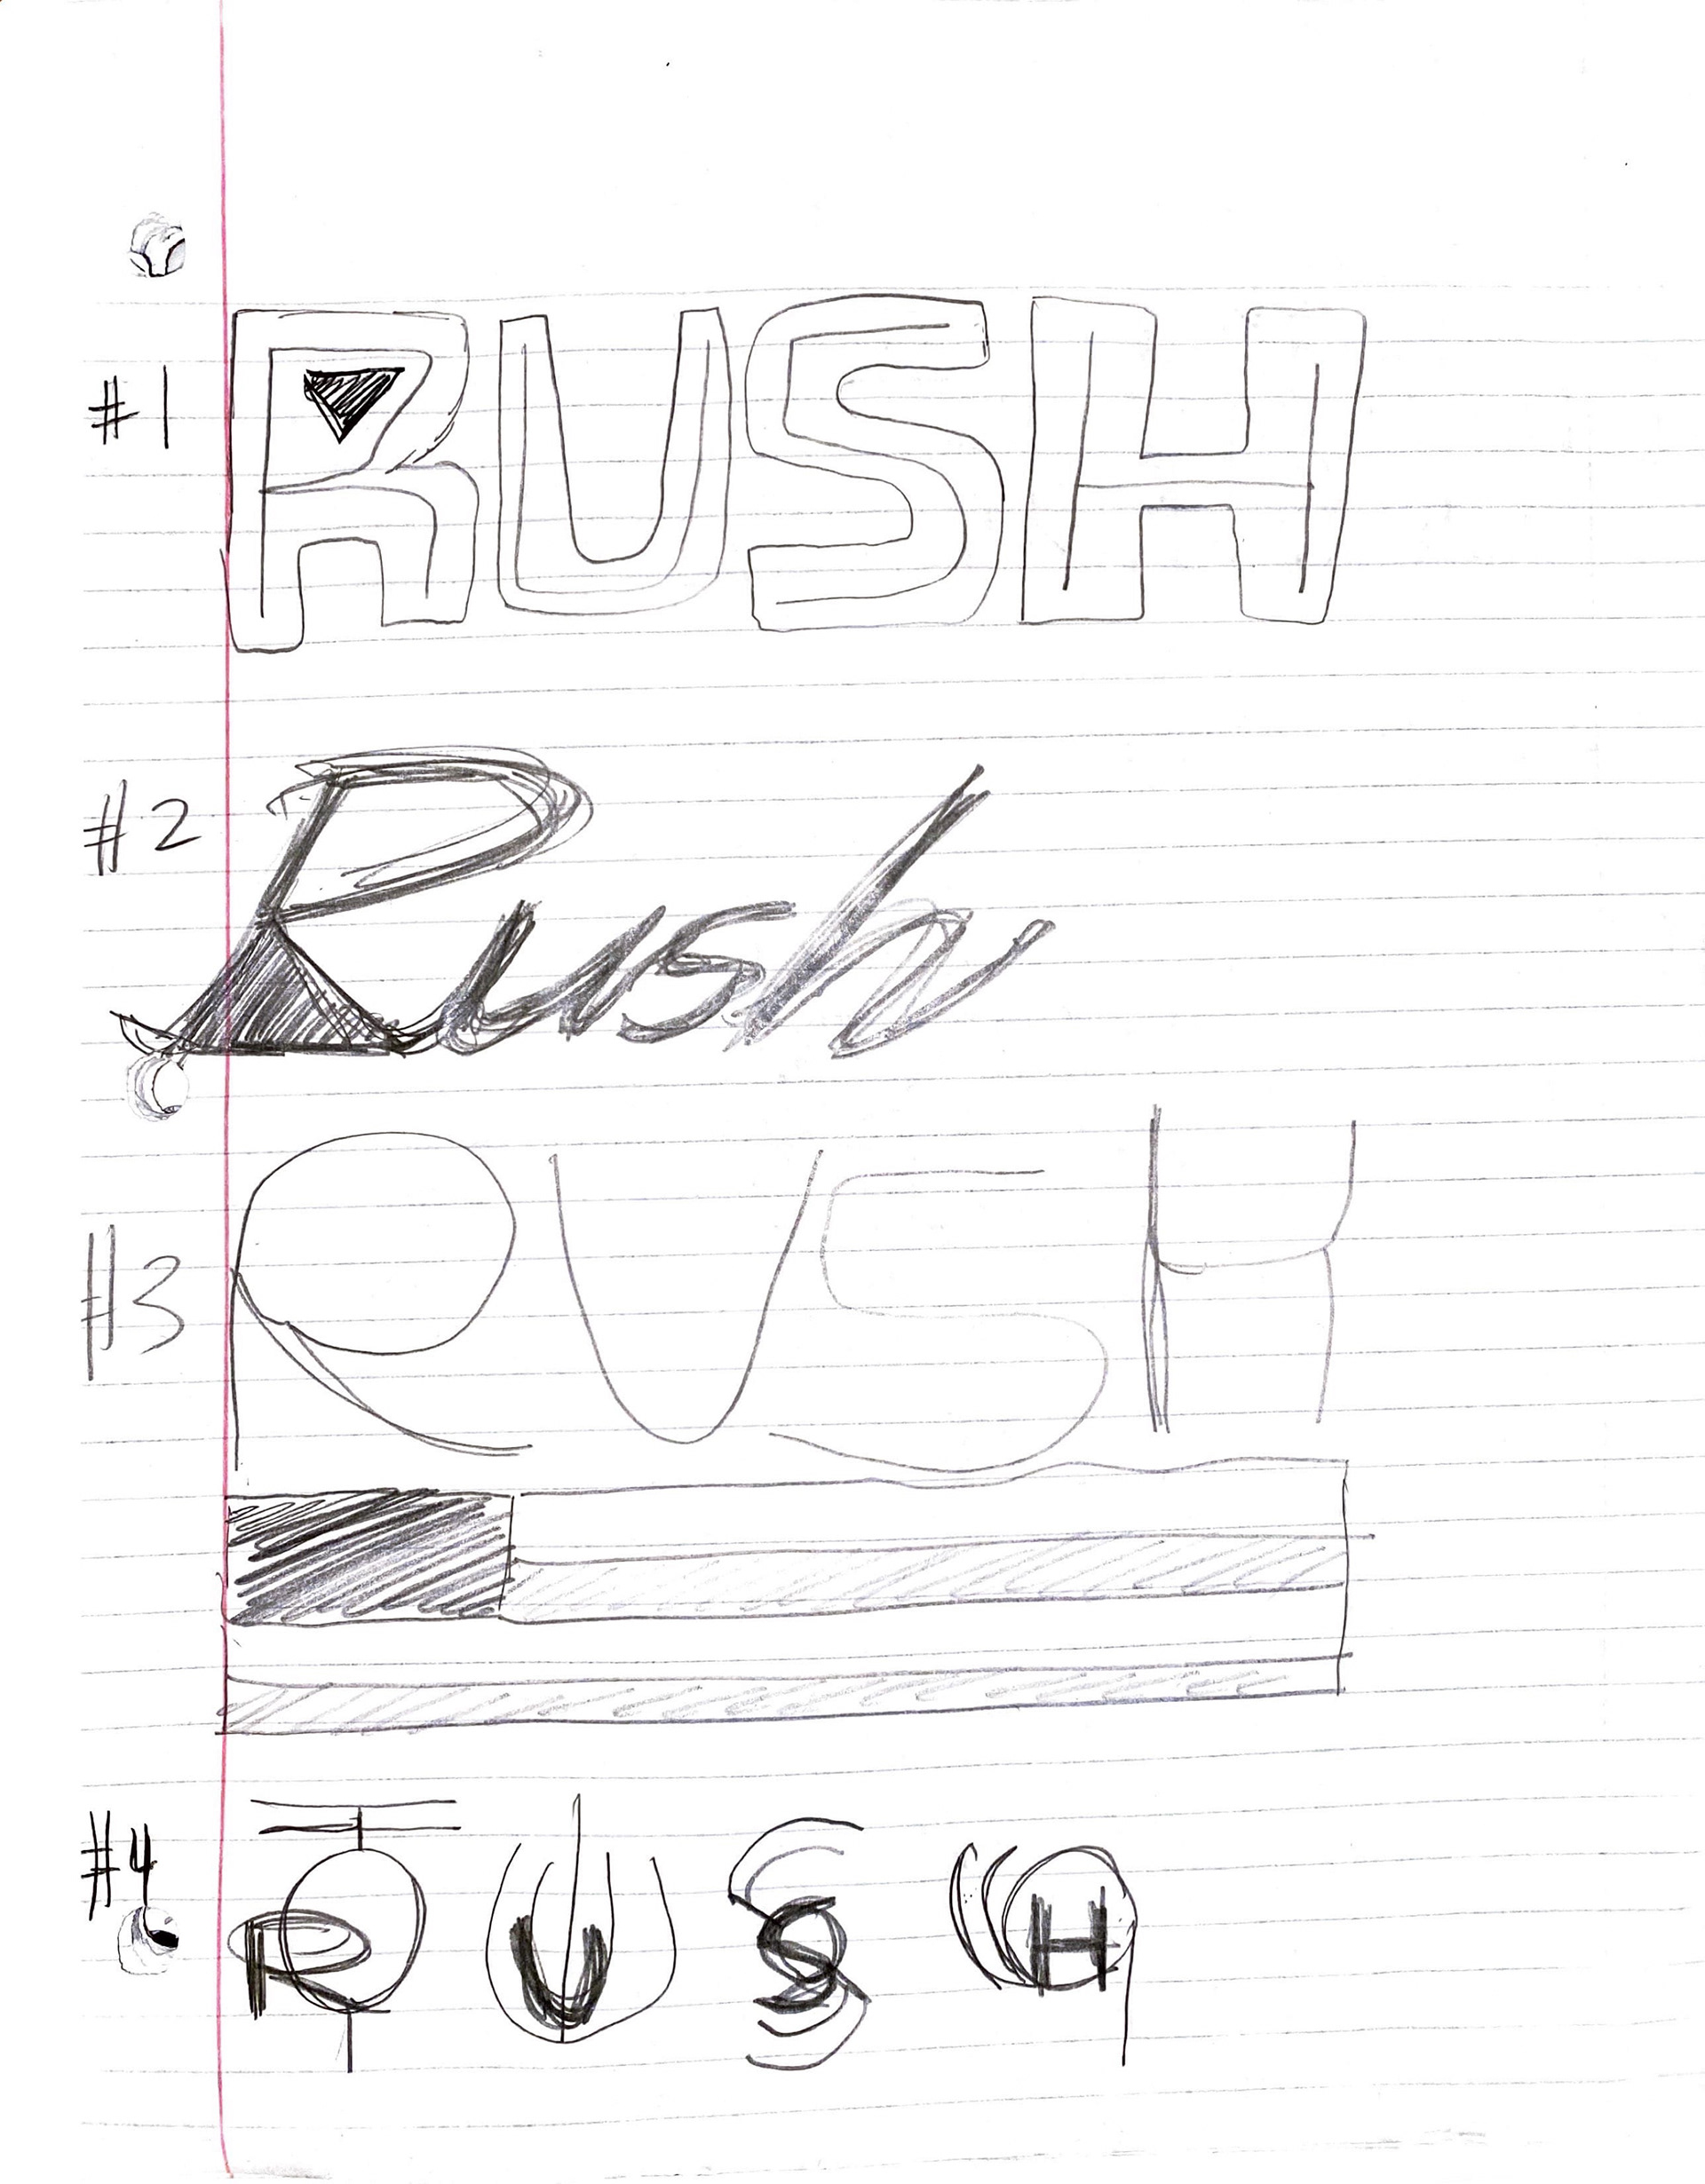 #1 RUSH
#2 Rush
#3 RUSH
#4 RUSH